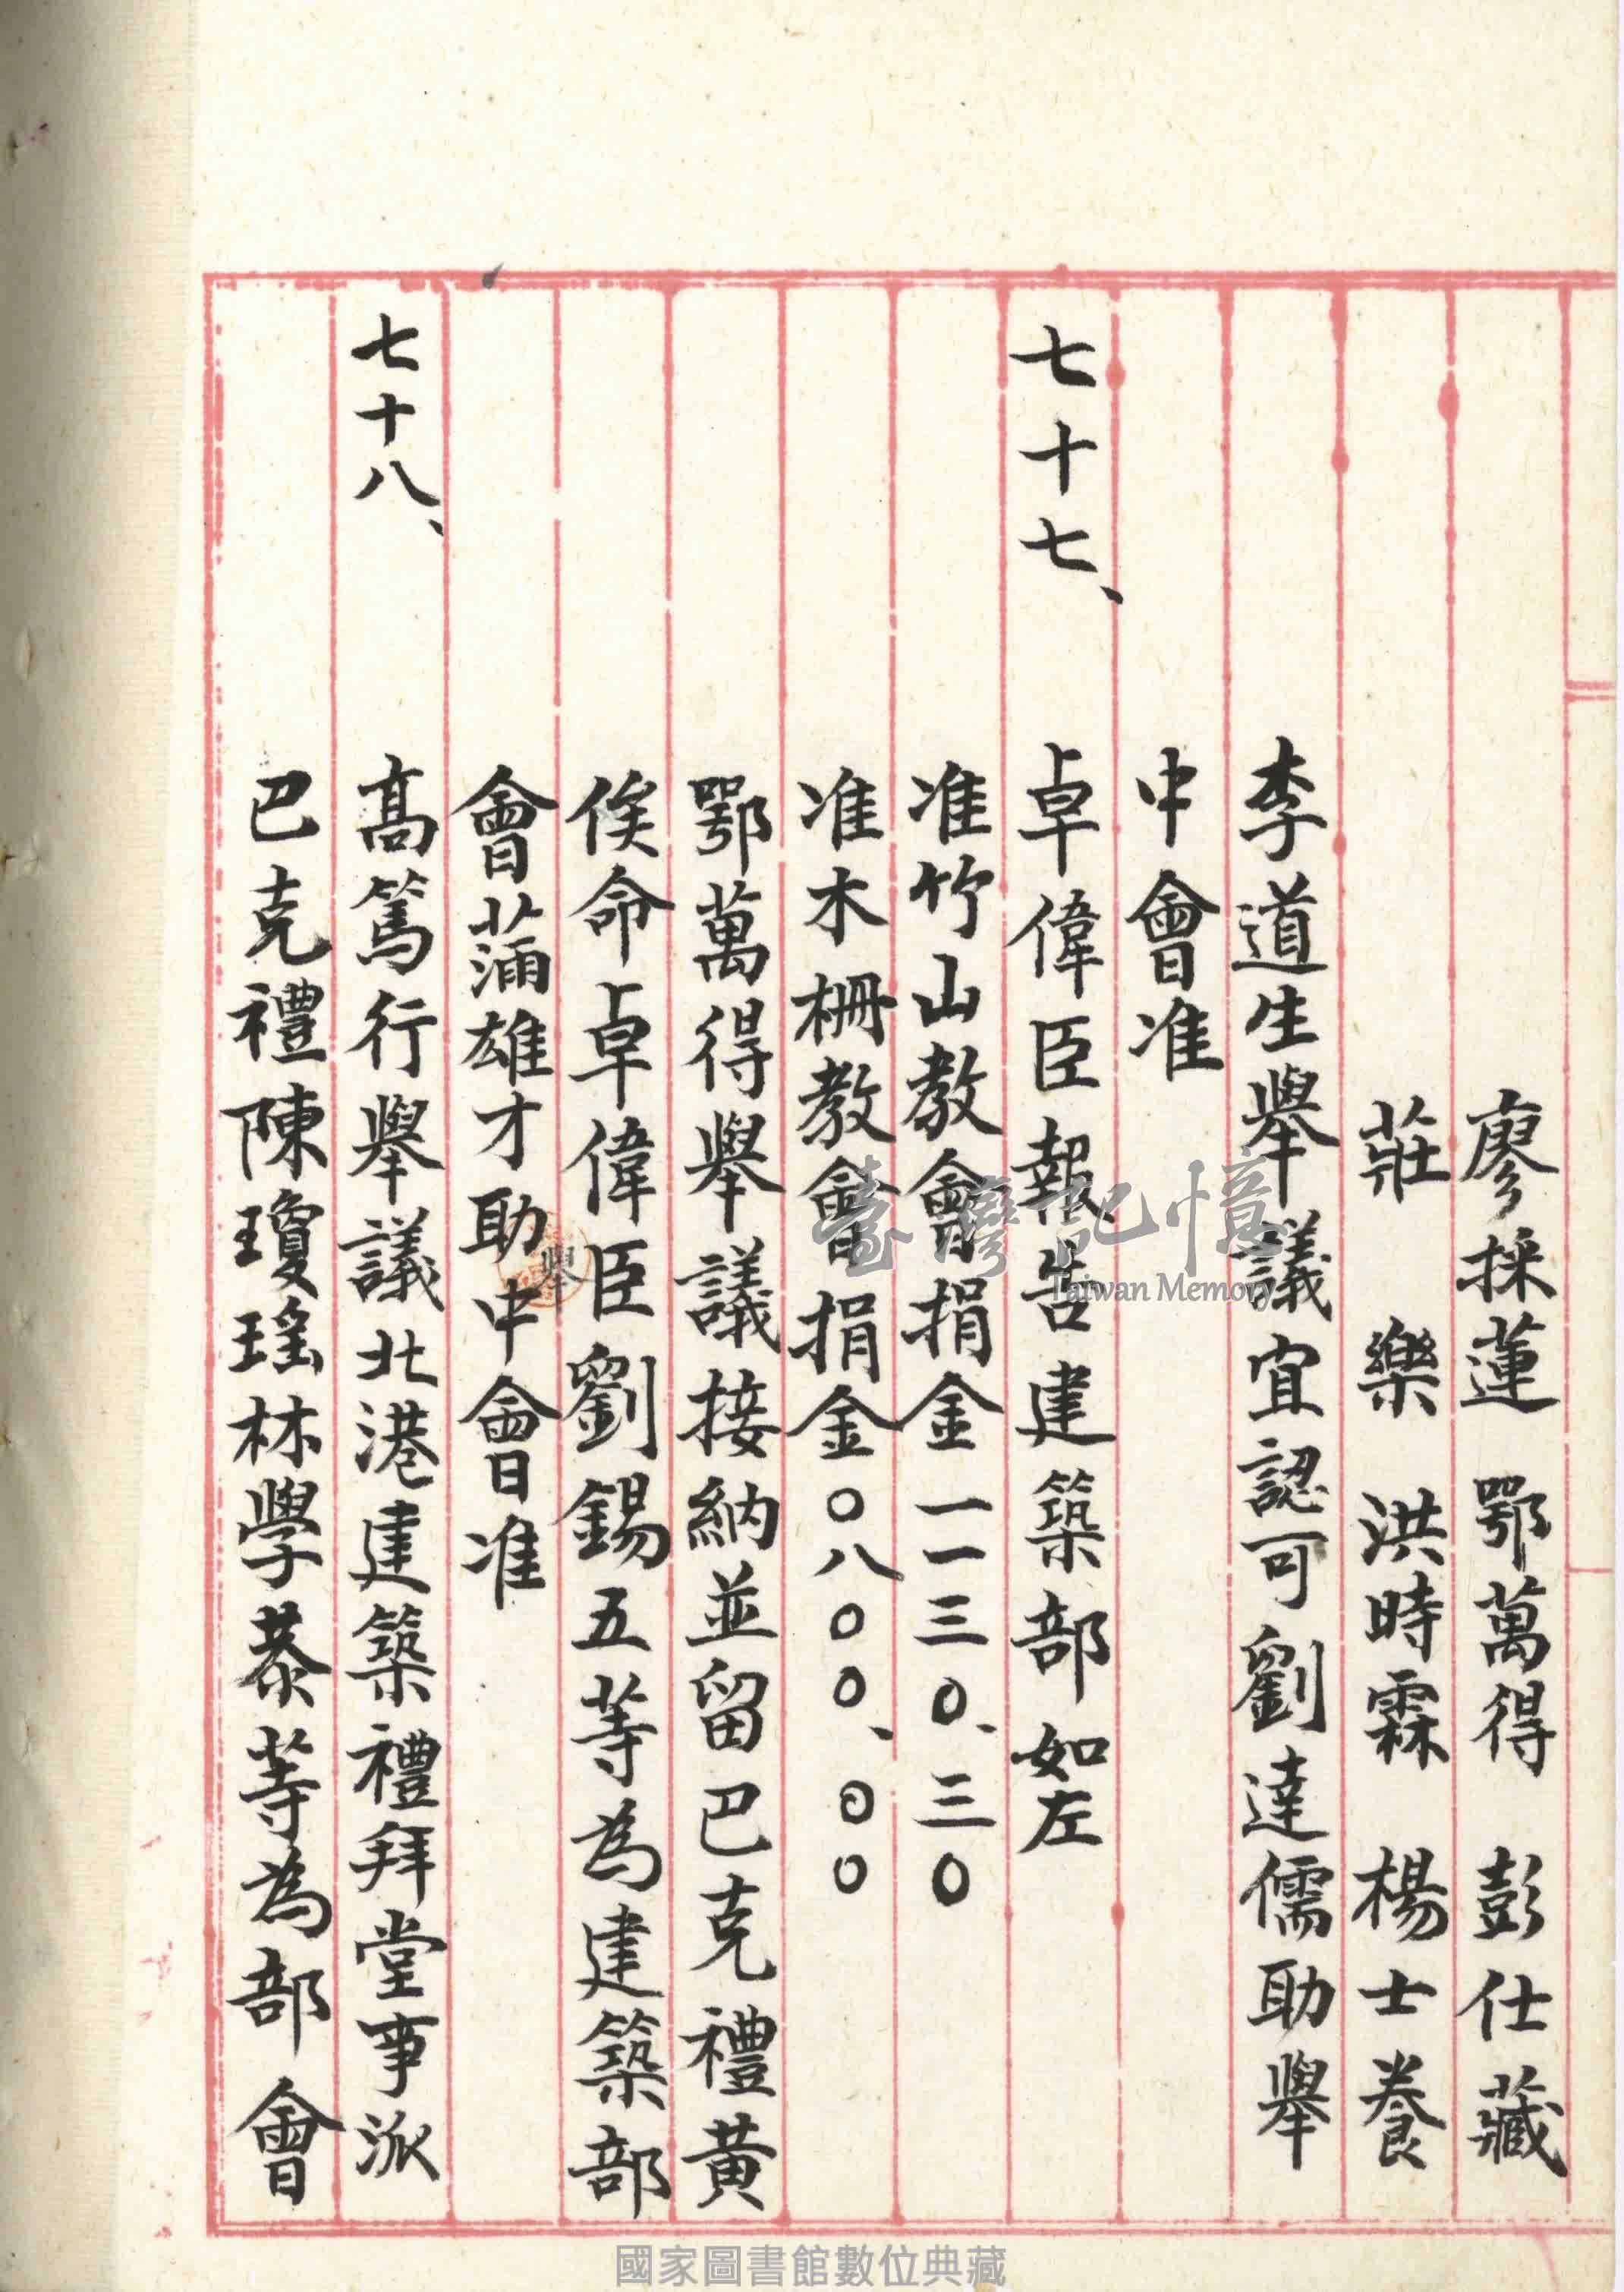 廖採蓮　鄂萬得　彭仕藏
莊　樂　洪時霖　楊士養
李道生舉議宜認可劉達儒助舉
中會准
七十七、卓偉臣報告建築部如左
准竹山教會捐金一一三〇、三〇
准木柵教會捐金〇八〇〇、〇〇
鄂萬得舉議接納並留巴克禮黃
俟命卓偉臣劉錫五等為建築部
會蒲雄才助舉中會准
七十八、高篤行舉議北港建築禮拜堂事派
巴克禮陳瓊瑤林學恭等為部會
臺灣記憶
Taiwan Memory
國家圖書館數位典藏